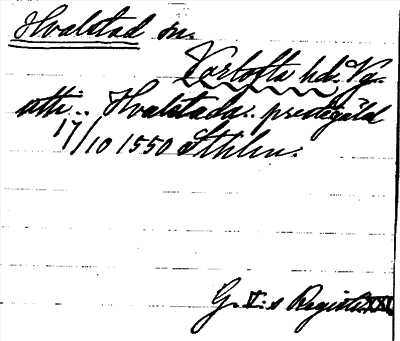 Hvalstad sn.
Vartofta hd. Vg.
atti.. Hvalstada.. prestegäld
17/10 1550 Sthlm.
G. V:s Registr. XXI